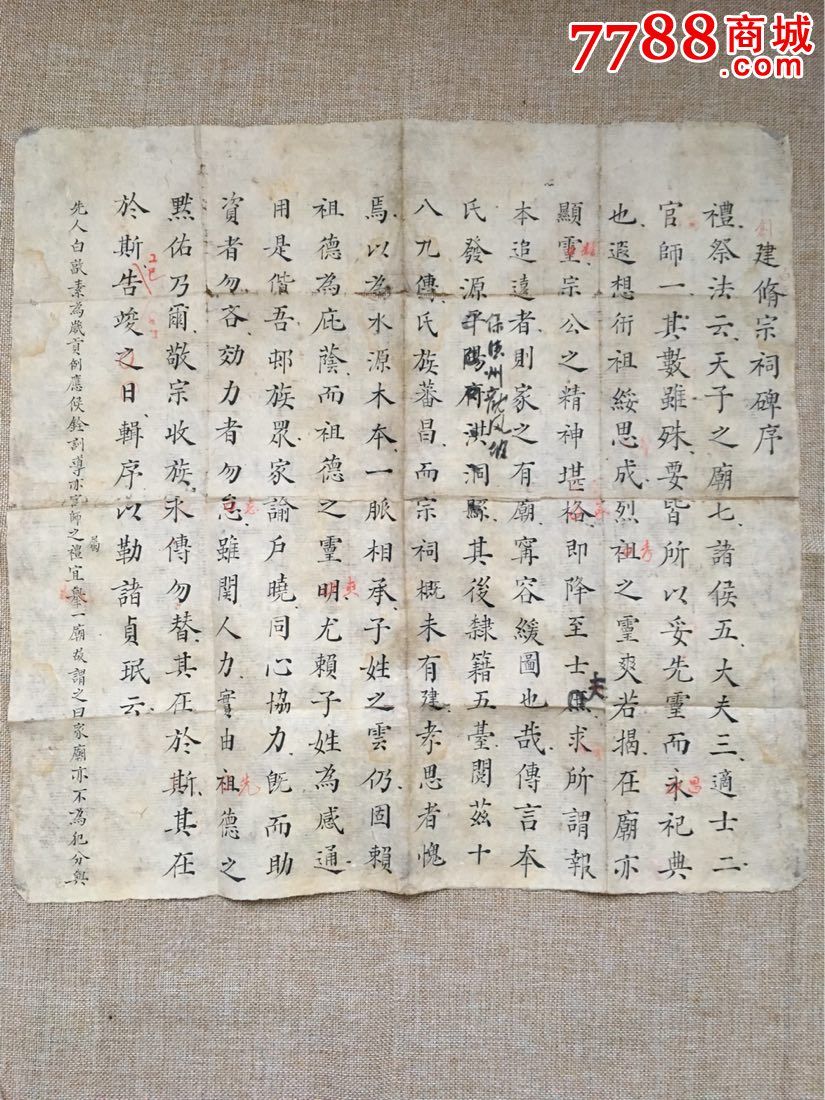 7788商城
.com
建脩宗祠碑序
禮祭法云天子之廟七諸侯五大夫三適士二
官師一其數雖殊要皆所以妥先靈而永祀典
也遐想衎祖綏思成烈祖之靈爽若揭在廟亦
顯靈宗公之精神堪格即降至士庶夫求所謂報
本追遠者則家之有廟甯容緩圖也哉傳言本
氏發源平陽府洪洞縣其後隸籍五臺閱茲十
八九傳氏族蕃昌而宗祠概未有建孝思者愧
焉以為水源木本一脈相承子姓之雲仍固賴
祖德為庇蔭而祖德之靈明尤賴子姓為感通
用是偕吾邨族眾家諭戶曉同心協力既而助
資者勿吝効力者勿怠雖関人力實由祖德之
默佑乃爾敬宗收族永傳勿替其在於斯其在
於斯告竣之日輯序以勒諸貞珉云
先人白歐素為歲貢例應候銓訓導亦官師之禮宜舉一廟故謂之曰家廟亦不為犯分與